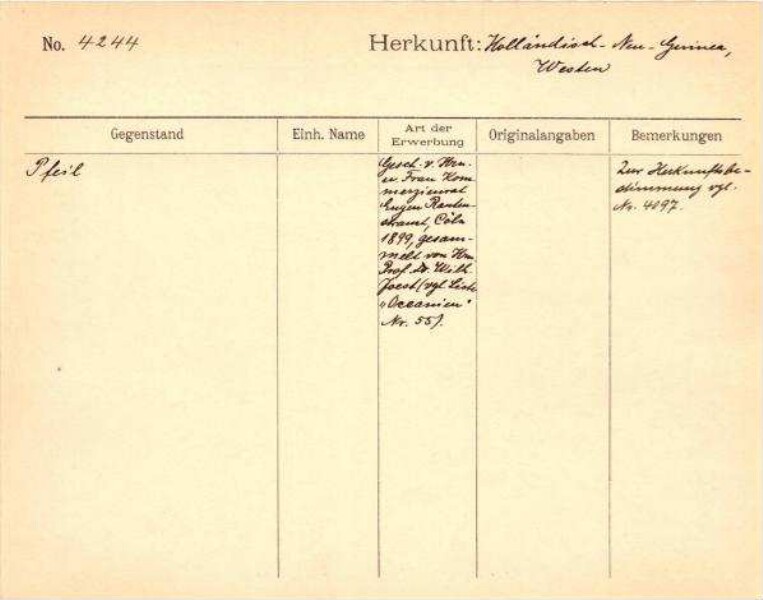 No. 4244
Herkunft: Holländisch-Neu-Guinea,
Westen
Gegenstand
Einh. Name
Art der
Erwerbung
Originalangaben
Bemerkungen
Pfeil
Gesch. v. Hrn.
u. Frau Kom
merzienrat
Eugen Rauten-
strauch, Cöln
1899, gesam-
melt von Hrn
Prof. Dr. Wilh.
Joest (vgl. Liste
"Oceanien"
Nr. 55).
Zur Herkunftsbe-
stimmung vgl.
Nr. 4097.